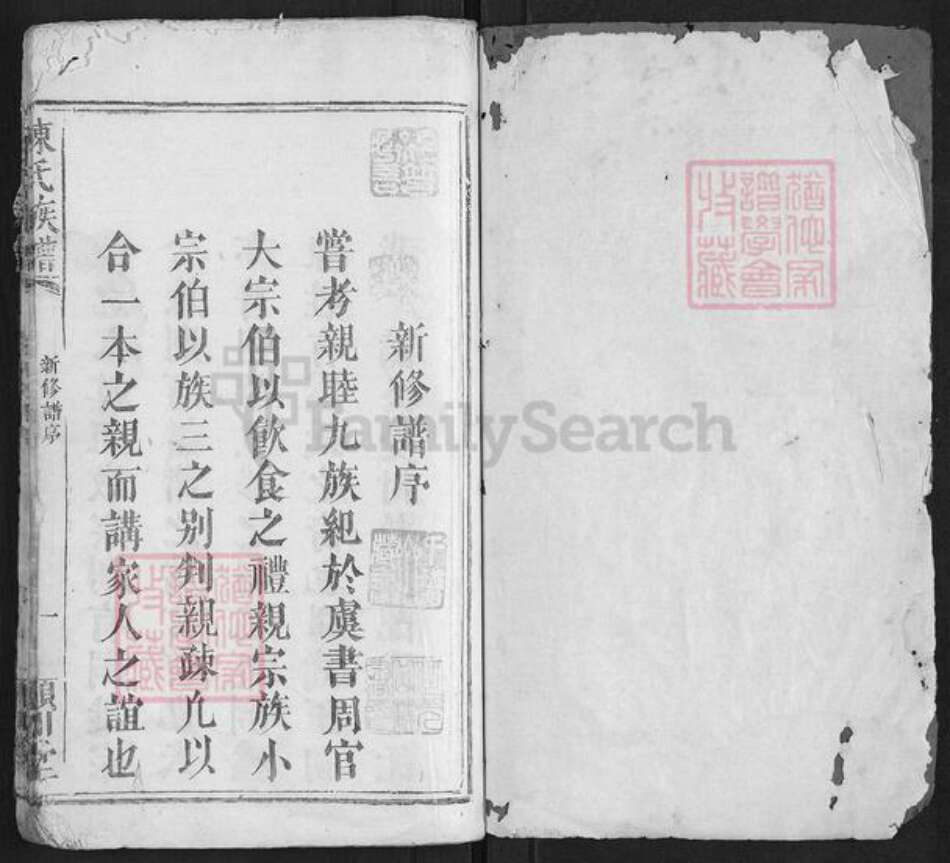 新修譜序
嘗考親睦九族紀於虞書周官
大宗伯以飲食之禮親宗族小
宗伯以族三之别判親疎凢以
合一本之親而講家人之誼也
陳氏族譜
新修譜序
一
潁川堂
譜學會
收藏
FamilySearch